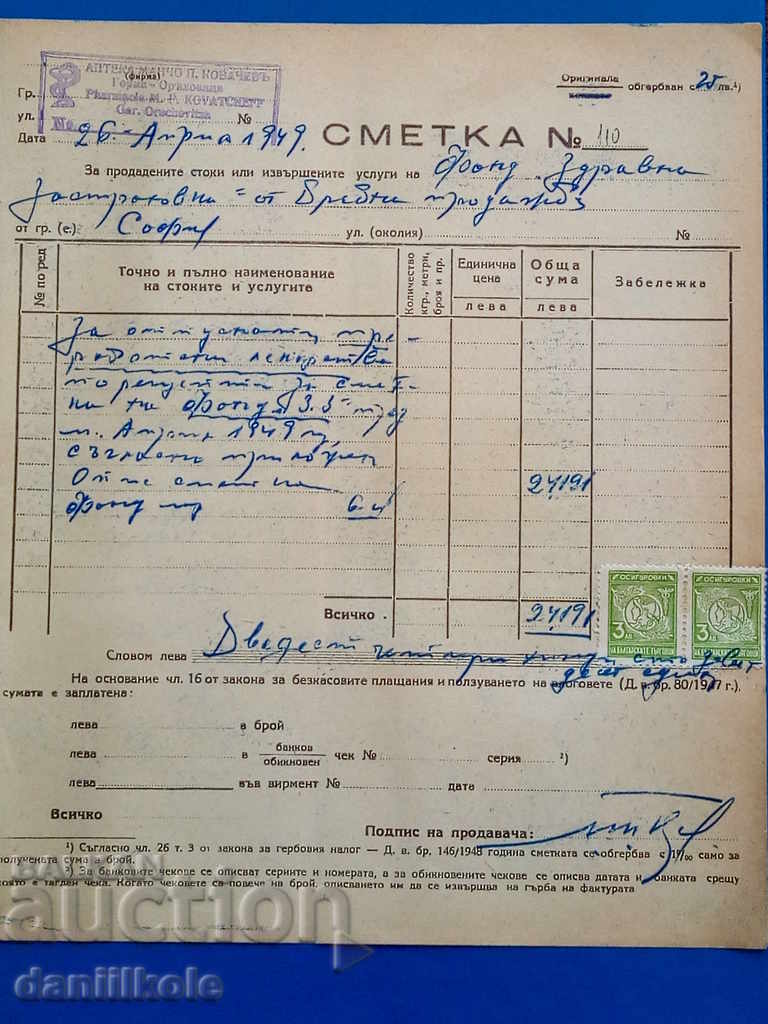 АПТЕКА МАНЧО П. КОВАЧЕВЪ
(фирма)
Горна-Оряховица
Pharmacie M. P. KOVATCHEFF
Gor. Orechovitza
Гр.
ул. №
No.
Оригинала обгербван с 25 лв.¹)
Дата 26. Април 1949. СМЕТКА № 110
За продадените стоки или извършените услуги на Фонд Здравна
Застраховка - от дребни продажби
от гр. (с.) София ул. (околия) №
№ по ред
Точно и пълно наименование на стоките и услугите
Количество кгр., метри, броя и пр.
Единична цена
лева
Обща сума
лева
Забележка
За отпуснати пре-
работени лекарства
по рецепти за смет-
ка на Фонд „З.З“ през
м. Април 1949 г.,
съгласно приложен
Опис сметка
24191
Фонд
Всичко 24191
Словом лева Двадесет четири хиляди сто девет
десет един
ОСИГУРОВКИ
3 ЛВ
НА БЪЛГАРСКИТЕ ТЪРГОВЦИ
ОСИГУРОВКИ
3 ЛВ
НА БЪЛГАРСКИТЕ ТЪРГОВЦИ
На основание чл. 16 от закона за безкасовите плащания и ползуването на влоговете (Д. в. бр. 80/1947 г.),
сумата е заплатена:
лева в брой
лева в банков обикновен чек № серия ²)
лева във вирмент № дата
Всичко
Подпис на продавача:
¹) Съгласно чл. 26 т. 3 от закона за гербовия налог — Д. в. бр. 146/1948 година сметката се обгербва с 1‰ само за
получената сума в брой.
²) За банковите чекове се описват сериите и номерата, а за обикновените чекове се описва датата и банката срещу
която е тегден чека. Когато чековете са повече на брой, описването им да се извършва на гърба на фактурата
BALKAN
auction
daniilkole